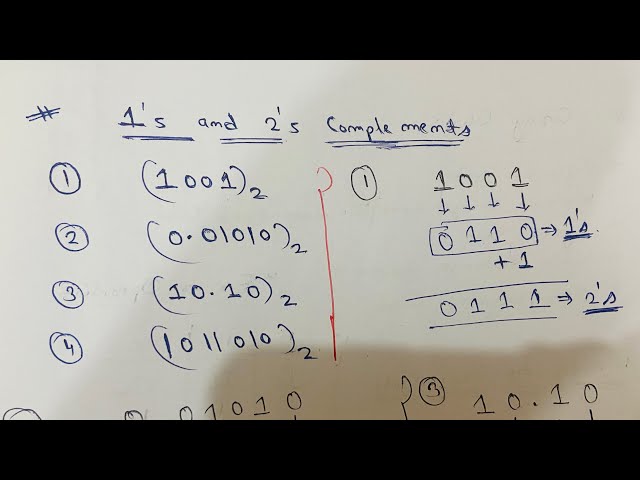 # 1's and 2's Complements
① (1001)₂
② (0.01010)₂
③ (10.10)₂
④ (1011010)₂
① 1 0 0 1
↓ ↓ ↓ ↓
0 1 1 0 ⇒ 1's
+ 1
0 1 1 1 ⇒ 2's
01010
③ 10.10